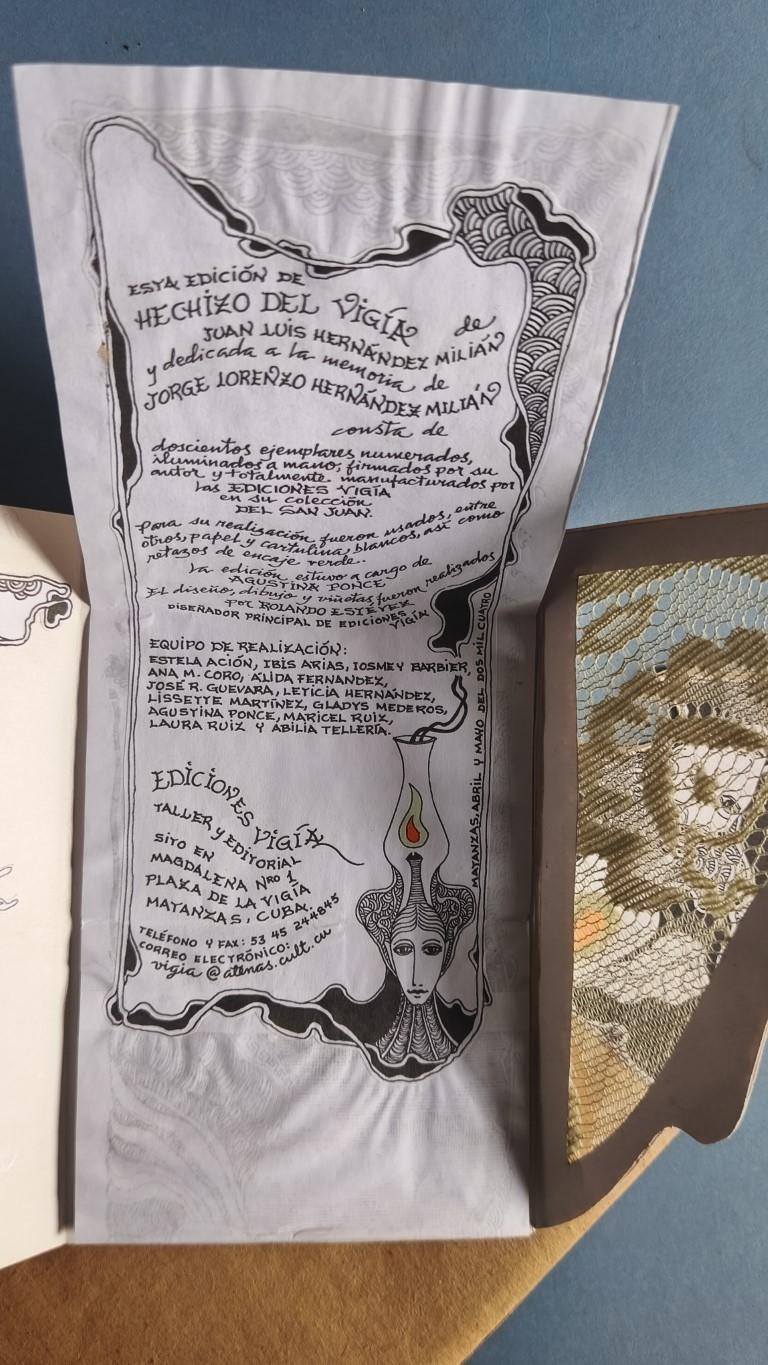 ESTA EDICIÓN DE
HECHIZO DEL VIGÍA
de
JUAN LUIS HERNÁNDEZ MILIÁN
y dedicada a la memoria de
JORGE LORENZO HERNÁNDEZ MILIÁN
consta de
doscientos ejemplares numerados,
iluminados a mano, firmados por su
autor y totalmente manufacturados por
las EDICIONES VIGÍA
en su colección
DEL SAN JUAN.
Para su realización fueron usados, entre
otros, papel y cartulina blancos, así como
retazos de encaje verde.
La edición estuvo a cargo de
AGUSTINA PONCE
El diseño, dibujo y viñetas fueron realizados
por ROLANDO ESTÉVEZ
DISEÑADOR PRINCIPAL DE EDICIONES VIGÍA
EQUIPO DE REALIZACIÓN:
ESTELA ACIÓN, IBIS ARIAS, IOSMEY BARBIER,
ANA M. CORO, ALIDA FERNANDEZ,
JOSÉ R. GUEVARA, LETICIA HERNÁNDEZ,
LISSETTE MARTÍNEZ, GLADYS MEDEROS,
AGUSTINA PONCE, MARICEL RUIZ,
LAURA RUIZ Y ABILIA TELLERÍA.
EDICIONES VIGÍA
TALLER Y EDITORIAL
SITO EN
MAGDALENA NRO 1
PLAZA DE LA VIGÍA
MATANZAS, CUBA.
TELÉFONO Y FAX: 53 45 244845
CORREO ELECTRÓNICO:
vigia@atenas.cult.cu
MATANZAS, ABRIL Y MAYO DEL DOS MIL CUATRO